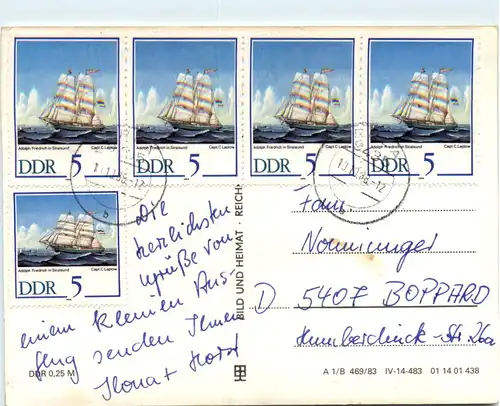 Adolph Friedrich in Stralsund Capt. C. Leplow
DDR 5
Adolph Friedrich in Stralsund Capt. C. Leplow
DDR 5
Adolph Friedrich in Stralsund Capt. C. Leplow
DDR 5
Adolph Friedrich in Stralsund Capt. C. Leplow
DDR 5
Adolph Friedrich in Stralsund Capt. C. Leplow
DDR 5
b
b
Die
herzlichsten
Grüße von
einem kleinen Aus-
flug senden Ihnen
Ilona + Horst
DDR 0,25 M
BILD UND HEIMAT REICH
Fam.
Nonninger
D 5407 BOPPARD
Humperdinck-Str. 26a
A 1/B 469/83 IV-14-483 01 14 01 438